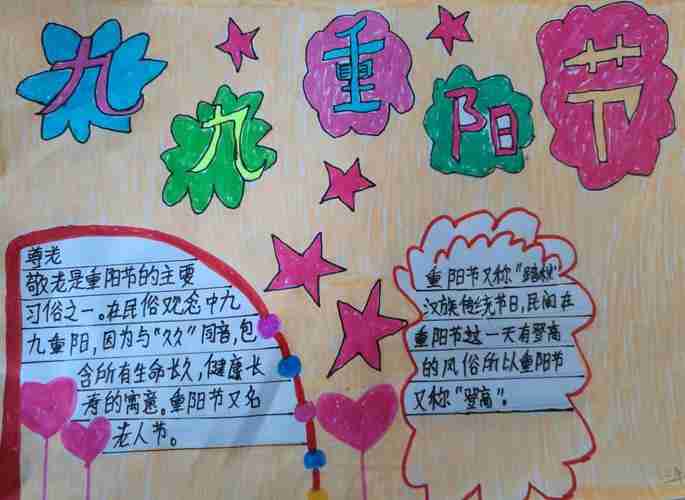 九九重阳节
尊老
敬老是重阳节的主要
习俗之一。在民俗观念中九
九重阳,因为与"久久"同音,包
含所有生命长久,健康长
寿的寓意。重阳节又名
老人节。
重阳节又称"踏秋"
汉族传统节日,民间在
重阳节这一天有登高
的风俗所以重阳节
又称"登高"。